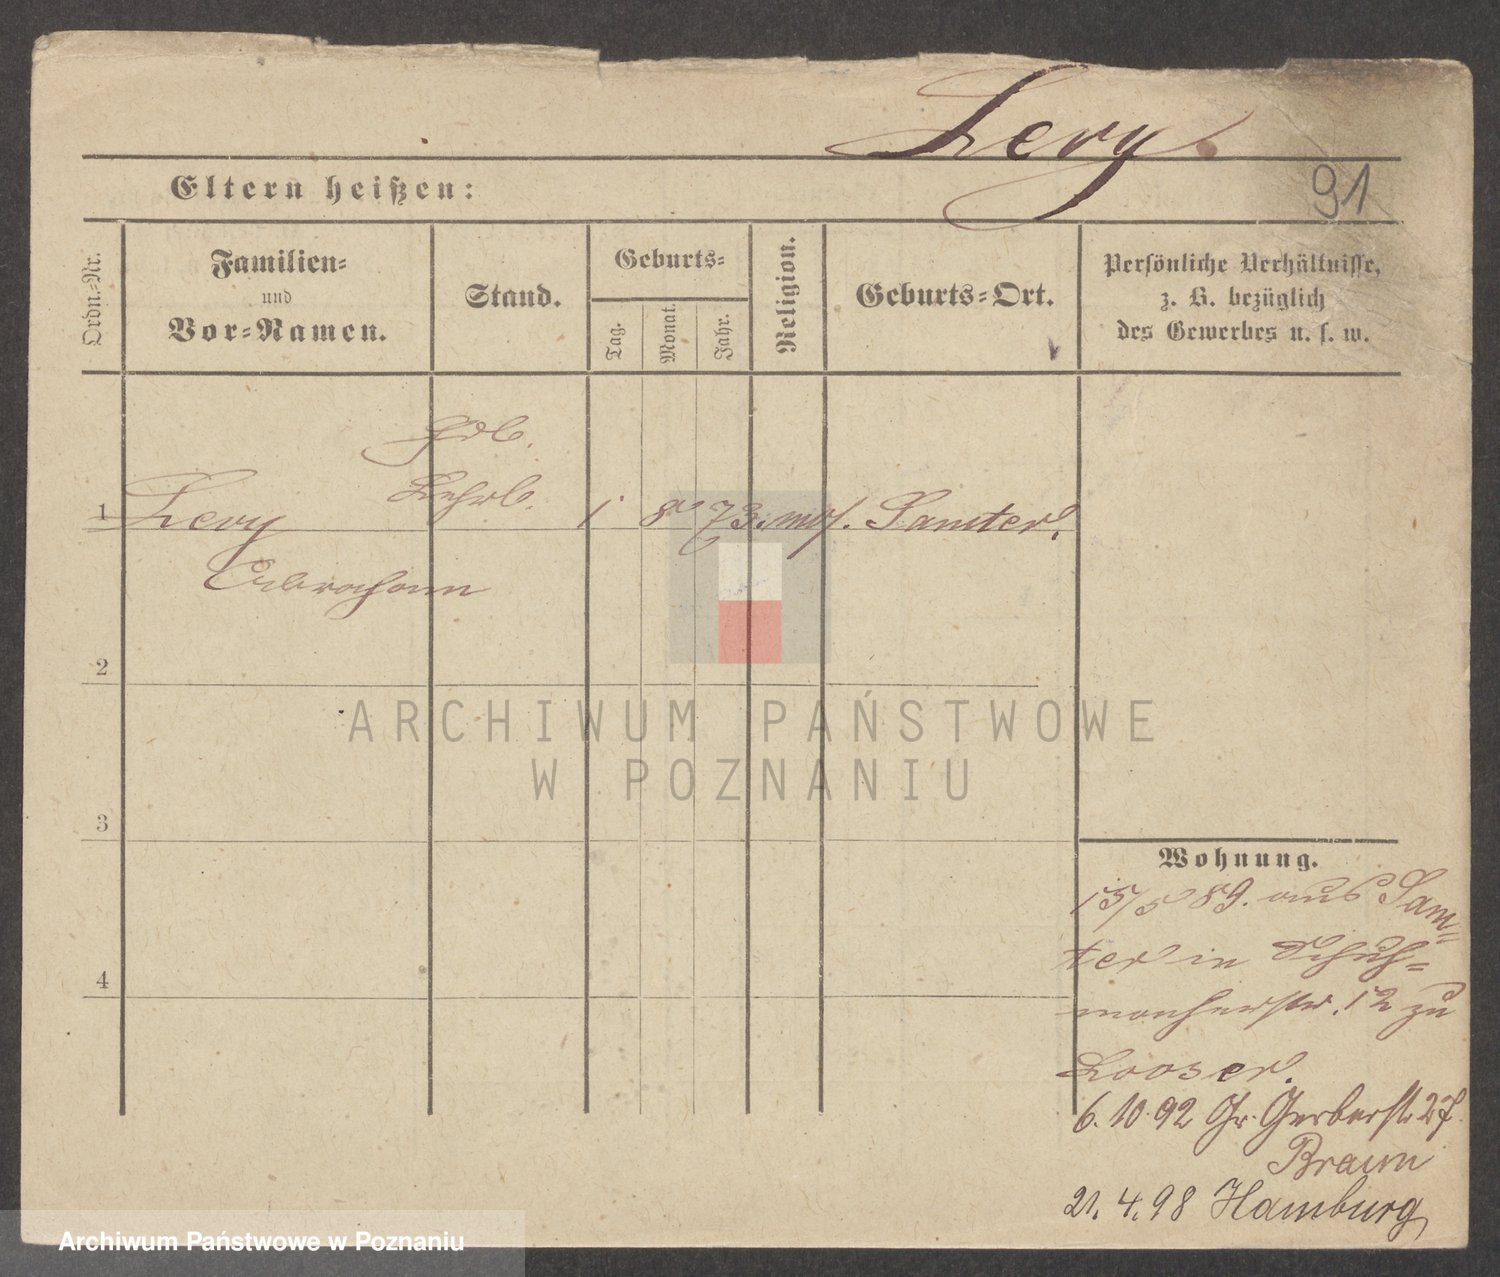 Levy.
91
Eltern heißen:
Ordn.-Nr.
Familien-
und
Vor-Namen.
Stand.
Geburts-
Tag.
Monat.
Jahr.
Religion.
Geburts-Ort.
Persönliche Verhältnisse,
z. B. bezüglich
des Gewerbes u. s. w.
Hdl.
Lehrl.
1 Levy 1 8 73. mos. Samter.
Abraham
2
3
4
Wohnung.
15/5 89. aus Sam-
ter in Schuh-
macherstr. 12 zu
Looser.
6.10.92 Gr. Gerberstr. 27
Braun
21.4.98 Hamburg
ARCHIWUM PAŃSTWOWE
W POZNANIU
Archiwum Państwowe w Poznaniu